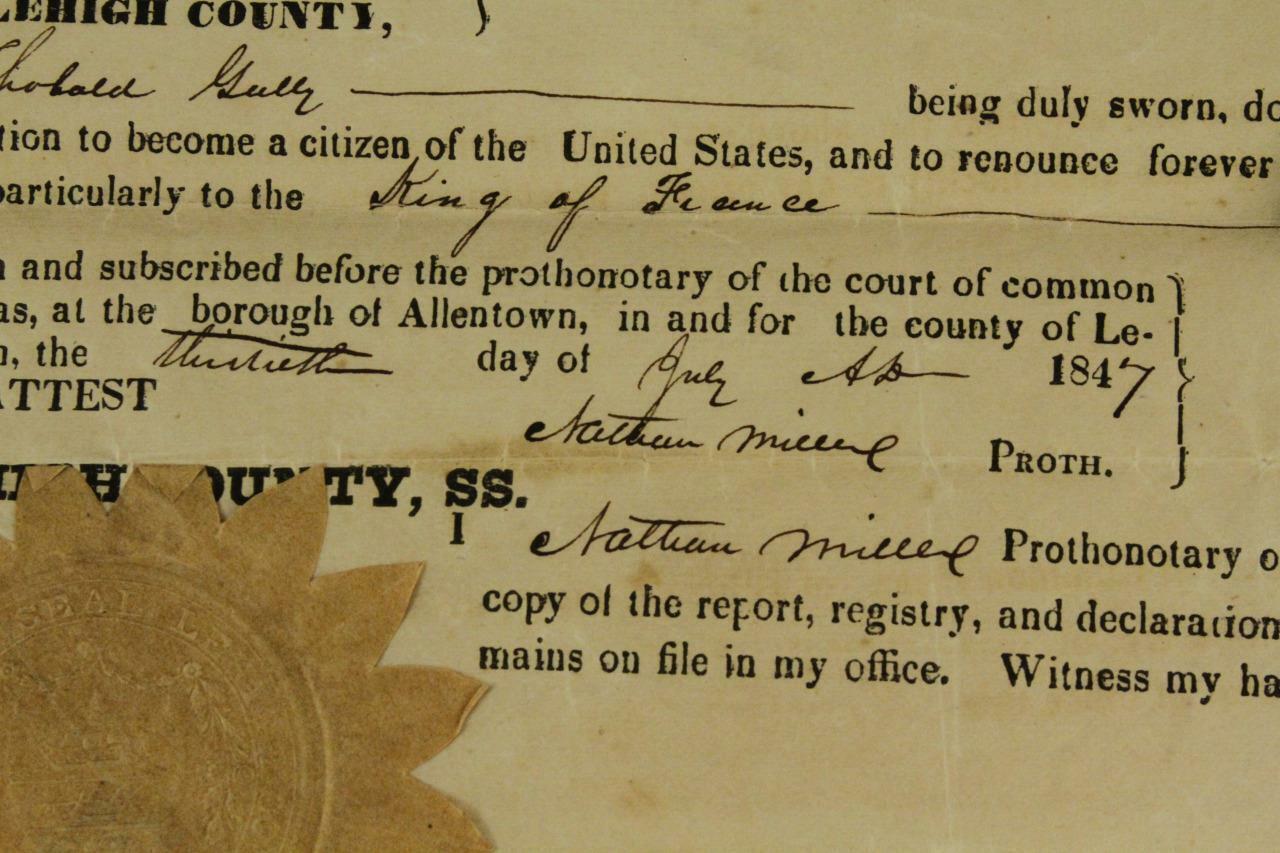 LEHIGH COUNTY, }
hobald Gully being duly sworn, do
tion to become a citizen of the United States, and to renounce forever
particularly to the King of France
n and subscribed before the prothonotary of the court of common
as, at the borough of Allentown, in and for the county of Le-
h, the thirtieth day of July AD 1847
ATTEST
Nathan Miller PROTH.
COUNTY, SS.
I Nathan Miller Prothonotary o
copy of the report, registry, and declaration
mains on file in my office. Witness my ha
SEAL